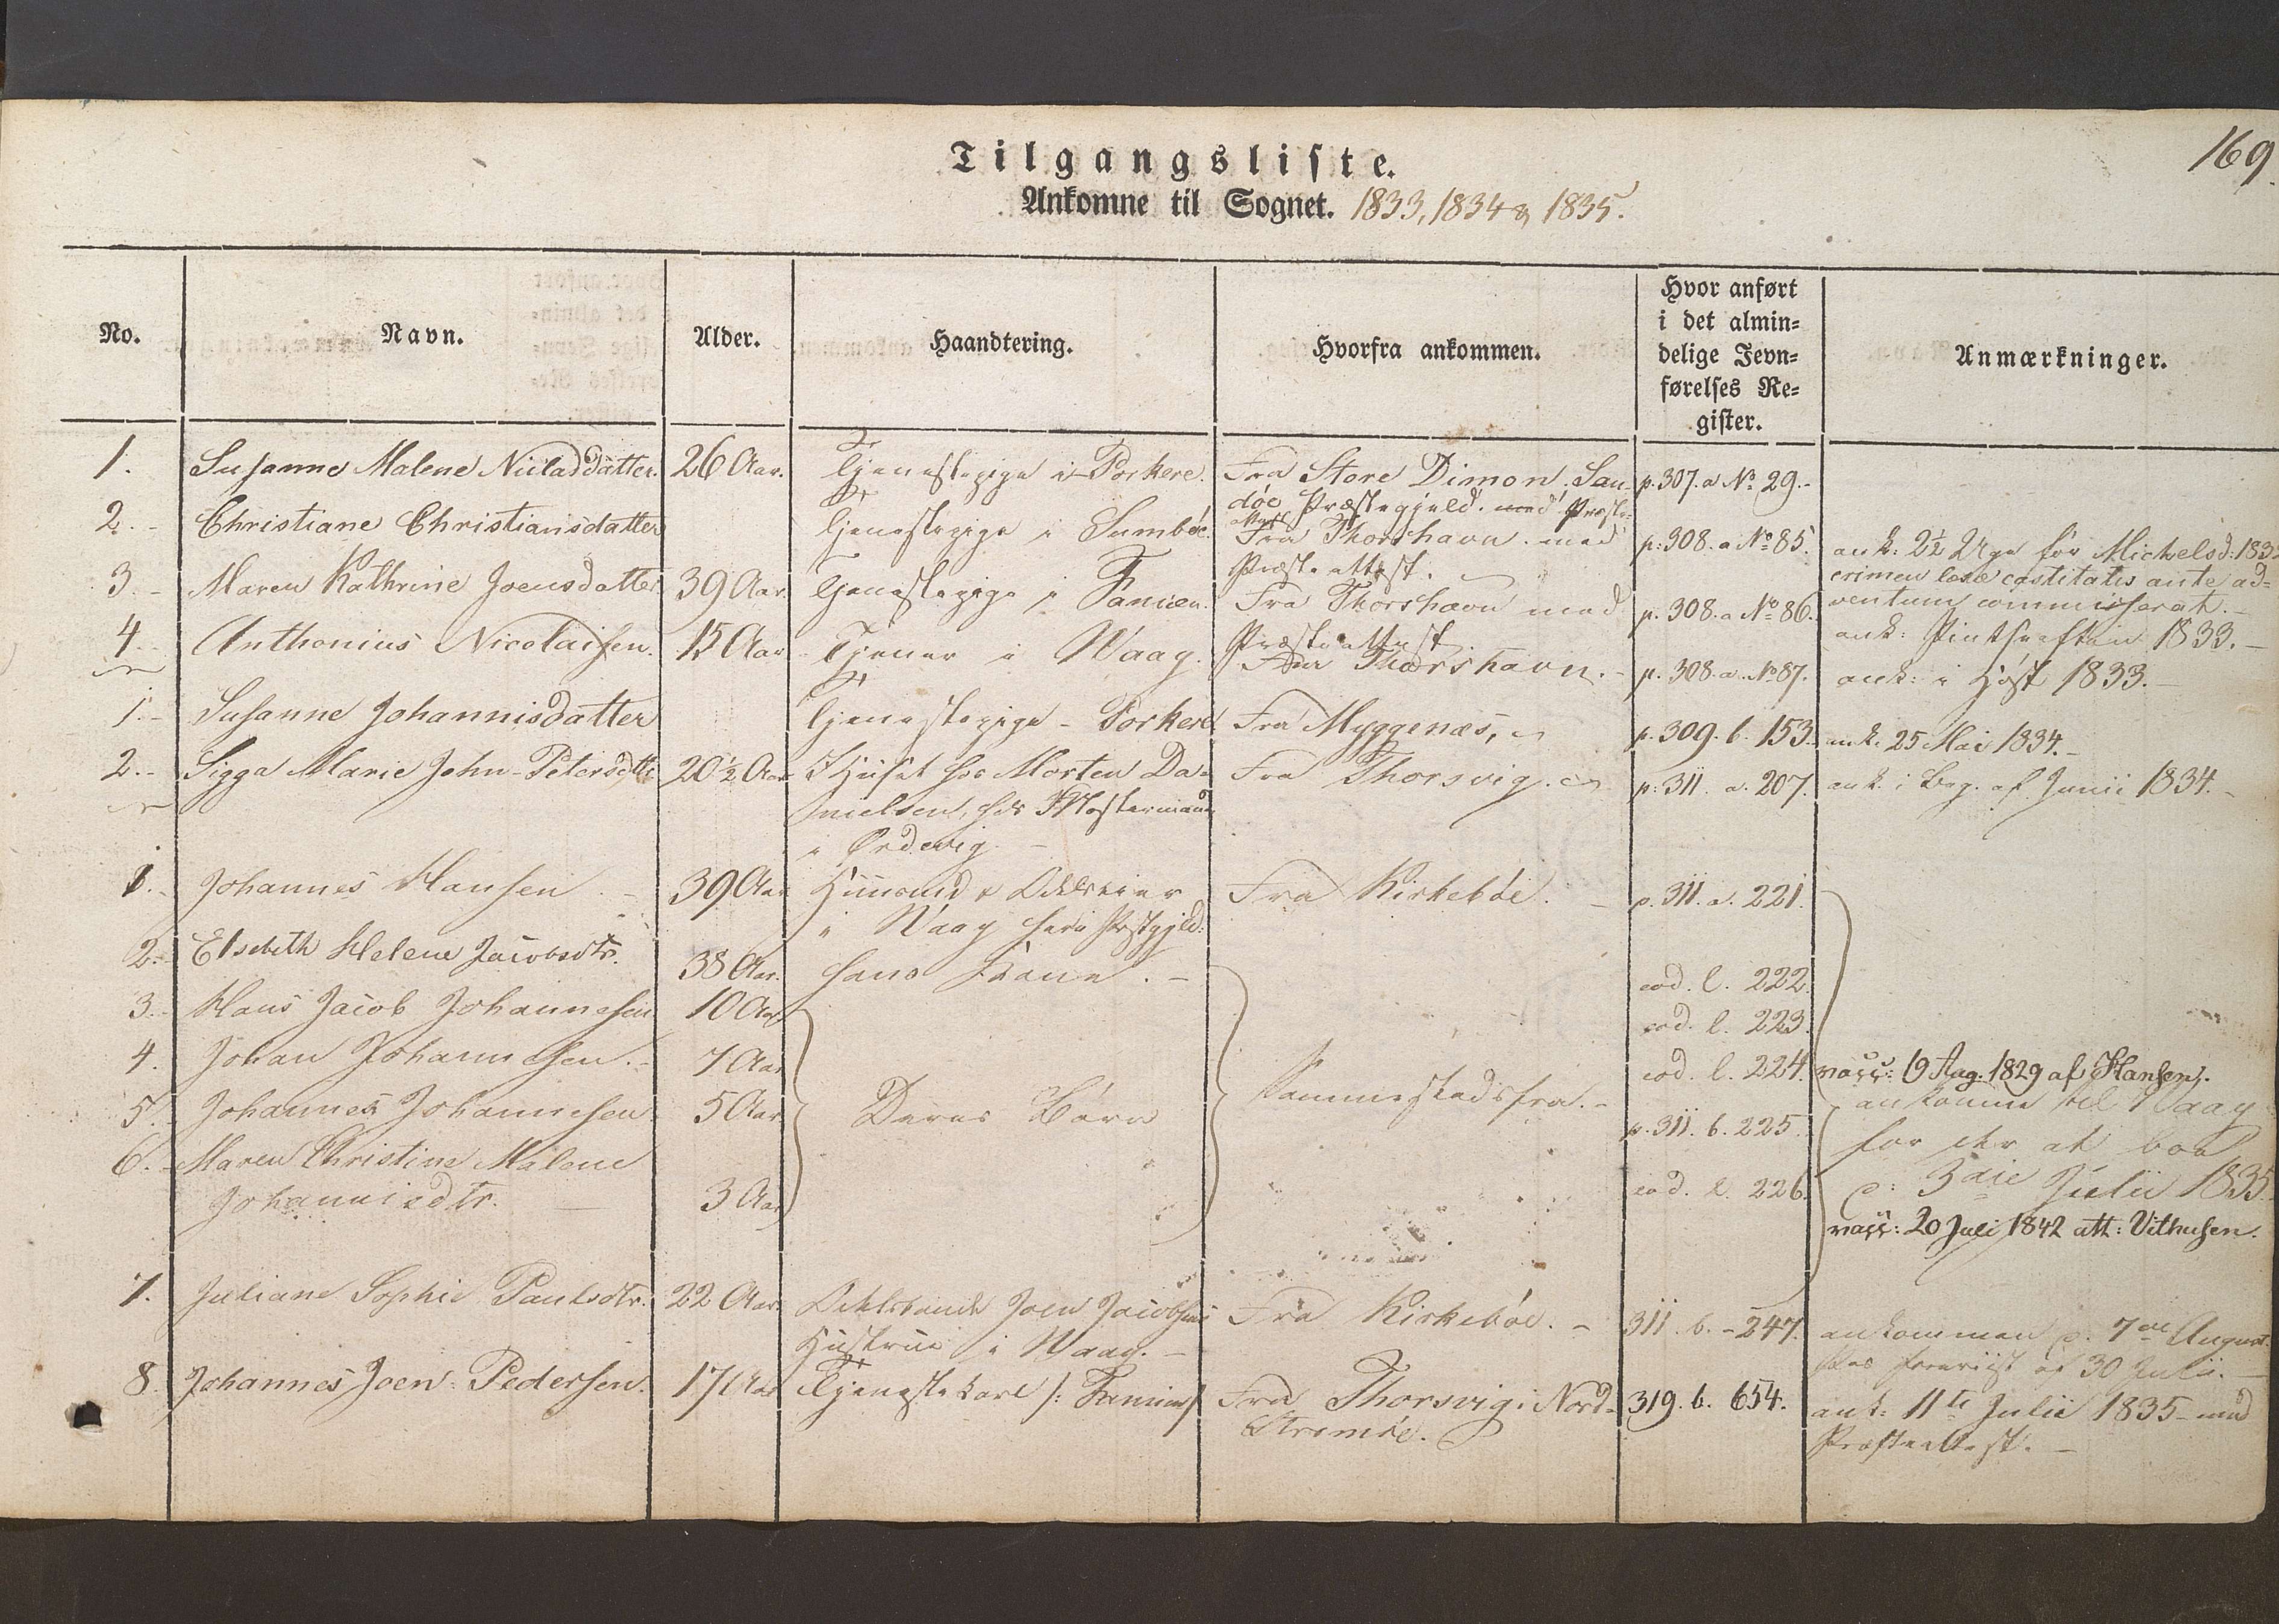 169.
Tilgangsliste.
Ankomne til Sognet. 1833, 1834 & 1835.
No. Navn. Alder. Haandtering. Hvorfra ankommen. Hvor anført i det almin= delige Jevn= førelses Re= gister. Anmærkninger.
1. Susanne Malene Niclasdatter. 26 Aar. Tjenestepige i Porkere. Fra Store Dimon. San- p. 307. a No 29.-
døe Præstegjeld. med Præste-
attest
2.- Christiane Christiansdatter Tjenestepige i Sumbøe. Fra Thorshavn. med p: 308. a No 85. ank: 2½ Uge før Michelsd: 183
Præsteattest. crimen læsæ castitatis ante ad=
ventum commisserat.-
3.- Maren Kathrine Joensdatter 39 Aar. Tjenestepige i Famien. Fra Thorshavn med p. 308. a No 86.
Præsteattest ank: Pintseaften 1833.-
4.- Anthonius Nicolaisen. 15 Aar Tjener i Waag. Fra Thorshavn.- p. 308. a. No 87. ank: i Høst 1833.-
1.- Susanne Johannisdatter Tjenestepige - Porkere Fra Myggenæs, p. 309. b. 153. ank. 25 Mai 1834.-
2.- Sigga Marie John-Petersdttr 20½ Aar I Huset hos Morten Da- Fra Thorsvig. p: 311. a. 207. ank. i Beg. af Junii 1834.-
nielsen,
i Ørdevig.-
1.- Johannes Hansen.- 39 Aar Huusmd & Odelseier Fra Kirkebøe.- p. 311. a. 221.
i Waag
2.- Elsebeth Helene Jacobsdtr. 38 Aar. hans Kone.- eod. l. 222.
3.- Hans Jacob Johannesen 10 Aar eod. l. 223.
4. Johan Johannesen.- 7 Aar eod. l. 224. vacc: 19 Aug. 1829 af Hansen.
5. Johannes Johannesen 5 Aar Deres Børn Sammestedsfra.- p. 311. b. 225. ankomne til Waag
for der at boe
6.- Maren Christine Malene
Johannisdtr. 3 Aar eod. l. 226. 3die Julii 1835.
vacc: 20 Juli 1842 att: Vithusen.
7. Juliane Sophie Paulsdtr. 22 Aar. Odelsbonde Joen Jacobsens Fra Kirkebøe.- 311. b.-247. ankommen d. 7de August.
Hustrue i Waag.- 30 Julii.-
8. Johannes Joen-Pedersen. 17 Aar Tjenestekarl /: Famien/ Fra Thorsvig i Nord- 319. b. 654. ank: 11te Julii 1835 - med
Strømøe. Præsteattest.-